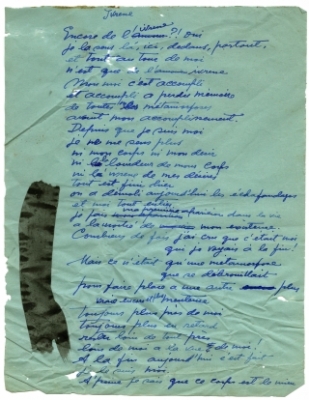 Encore de l' ?! Oui
Je le vous là, ici, dedans, partout,
et tout autour de moi
n'est que
Mon moi c'est accompli
et accompli a perdu mémoire
de toutes les métamorfoses
avant mon accomplissement.
Depuis que je suis moi
Je ne me sens plus
ni mon corps ni mon
ni la de mes corps
ni la de mes désirs
Tout est fini hier
on a aujourd'hui les échafaudages
et moi tout entier
je fais aparision dans la vie
a la moitié de mon existence.
Combien de fois j'ai cru que c'était moi
que je voyais à la fin!
Mais ce n'était qu'une métamorfose
que se débrouillait
pour faire place a une autre plus
menteuse
toujours plus près de moi
toujours plus en retard
rester loin de tout près
loin de moi a la de moi!
A la fin aujourd'hui c'est fait
Je suis moi.
A peine je sais que ce corps est le mien